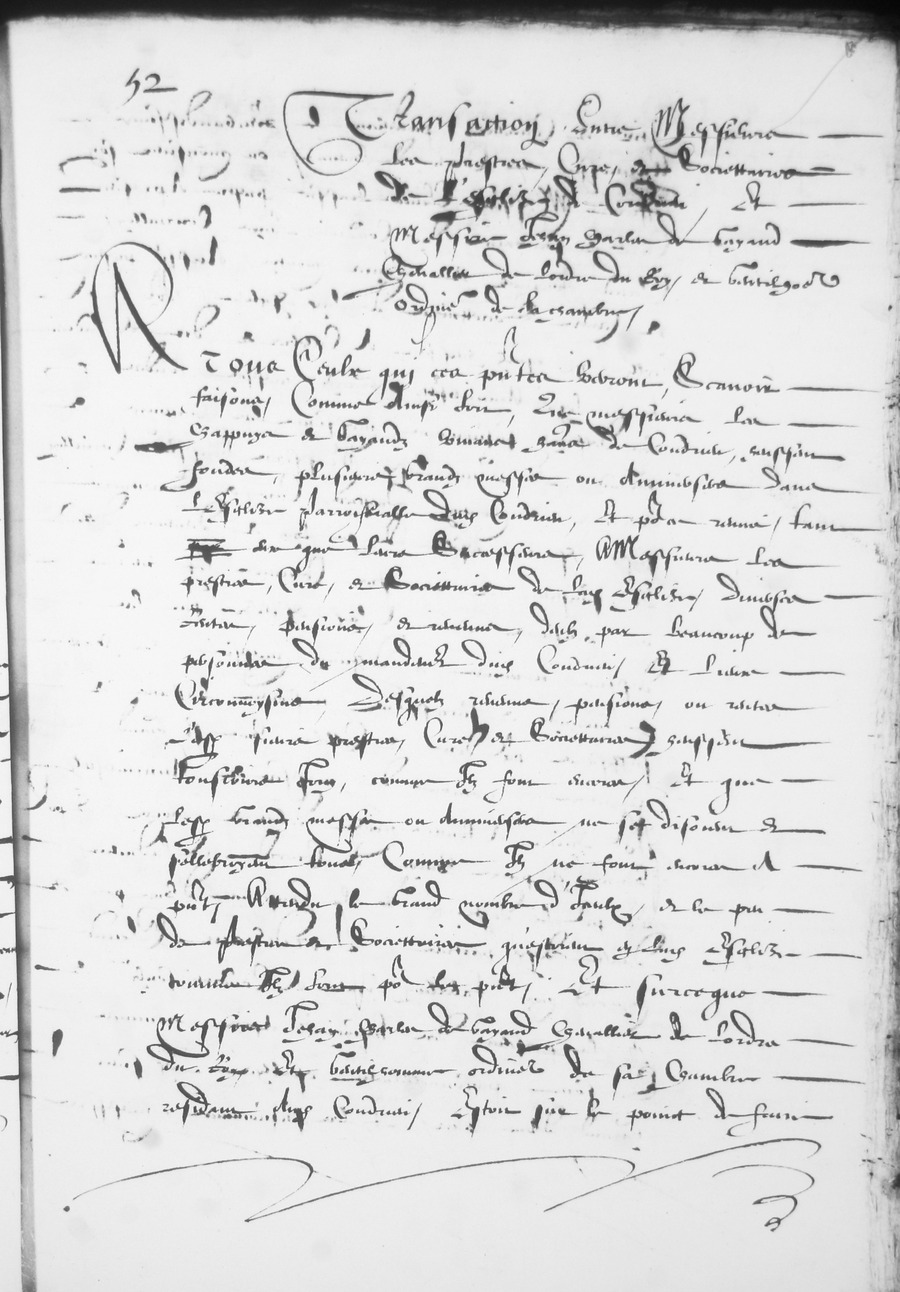 52
Transaction Entre Messieurs
les prestres, Cure, et Societtaires
de l'Esglize de Condrieu, Et
Messire Jehan Charles de Gayand
Chevallier de lordre du Roy, et gentilhoe
ordinre de sa chambre,
A Tous Ceulx qui ces pntes verront, Scavoir
faisons, Comme Ainsi soit, Que messieurs les
et Gayandz de Condrieu, eussent
fondes, plusieurs grandz messes ou Anniversres dans
l'Esglize parroschialle dud Condrieu, Et po ce remis, tant
eux que leurs Successeurs, A Messieurs les
prestres, Cure, et Societtaires de lad Esglize, diverses
Rentes, pensions, et revenus, deubz par beaucoup de
personnes du mandement dud Condrieu, Et lieux
Circonvoysins, Desquelz revenus, pensions, ou rentes
lesd sieurs prestres, Cure et Societtaires eussent
tousjours Jouy, comme Ilz font encores, Et que
lesd grandz messes ou Anniversres ne se disoient et
sellebroyent toutes, Comme Ilz ne font encores A
pnt, Attendu le grand nombre d'Iceulx, et le peu
de prestres et Societtaires questoient en lad Esglize
comme Ilz sont po le pnt, Et surceque
Messire Jehan Charles de Gayand Chevallier de lordre
du Roy Et gentilhomme ordinre de sa Chambre
residant aud Condrieu, Estoit sur le poinct de